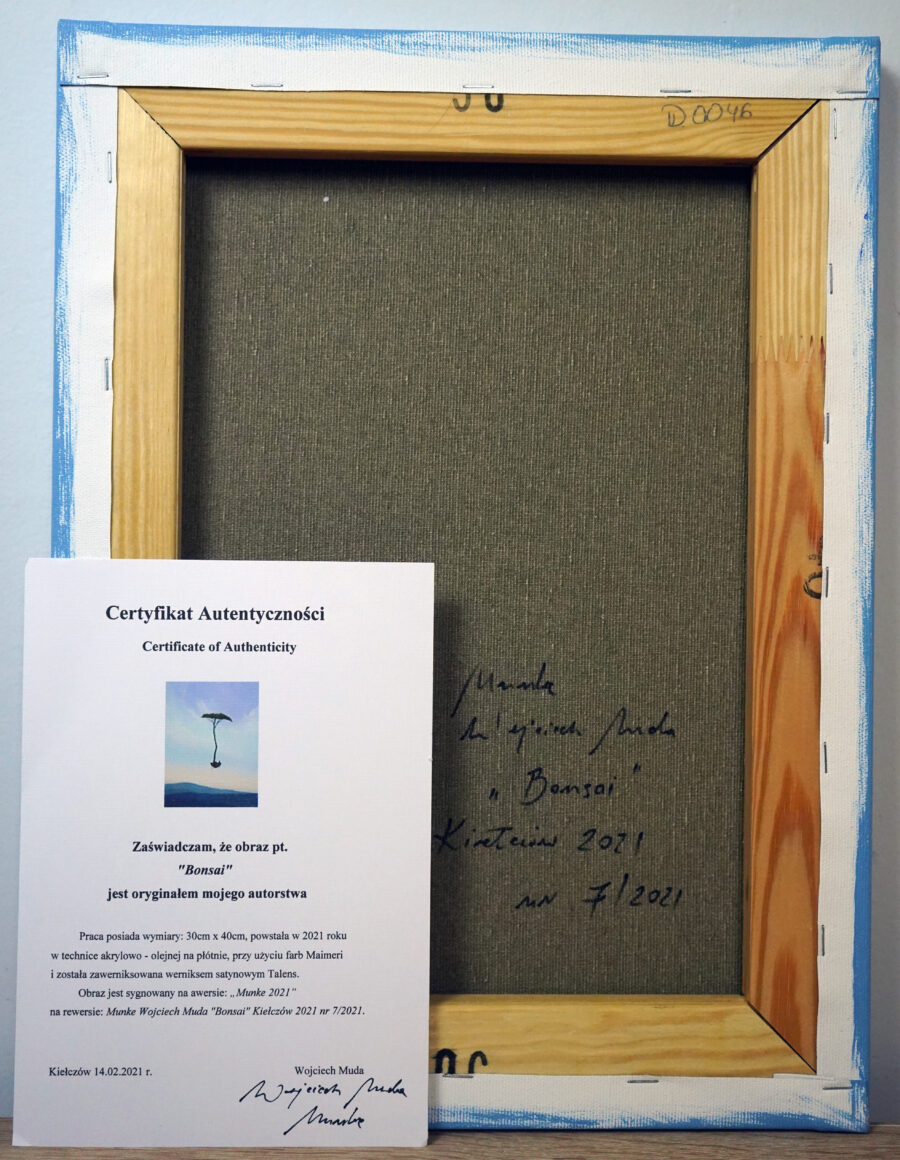 D0046
Certyfikat Autentyczności
Certificate of Authenticity
Zaświadczam, że obraz pt.
"Bonsai"
jest oryginałem mojego autorstwa
Praca posiada wymiary: 30cm x 40cm, powstała w 2021 roku
w technice akrylowo - olejnej na płótnie, przy użyciu farb Maimeri
i została zawerniksowana werniksem satynowym Talens.
Obraz jest sygnowany na awersie: „Munke 2021"
na rewersie: Munke Wojciech Muda "Bonsai" Kiełczów 2021 nr 7/2021.
Kiełczów 14.02.2021 r.
Wojciech Muda
Wojciech Muda
Munke
Munke
Wojciech Muda
„Bonsai"
Kiełczów 2021
nr 7/2021